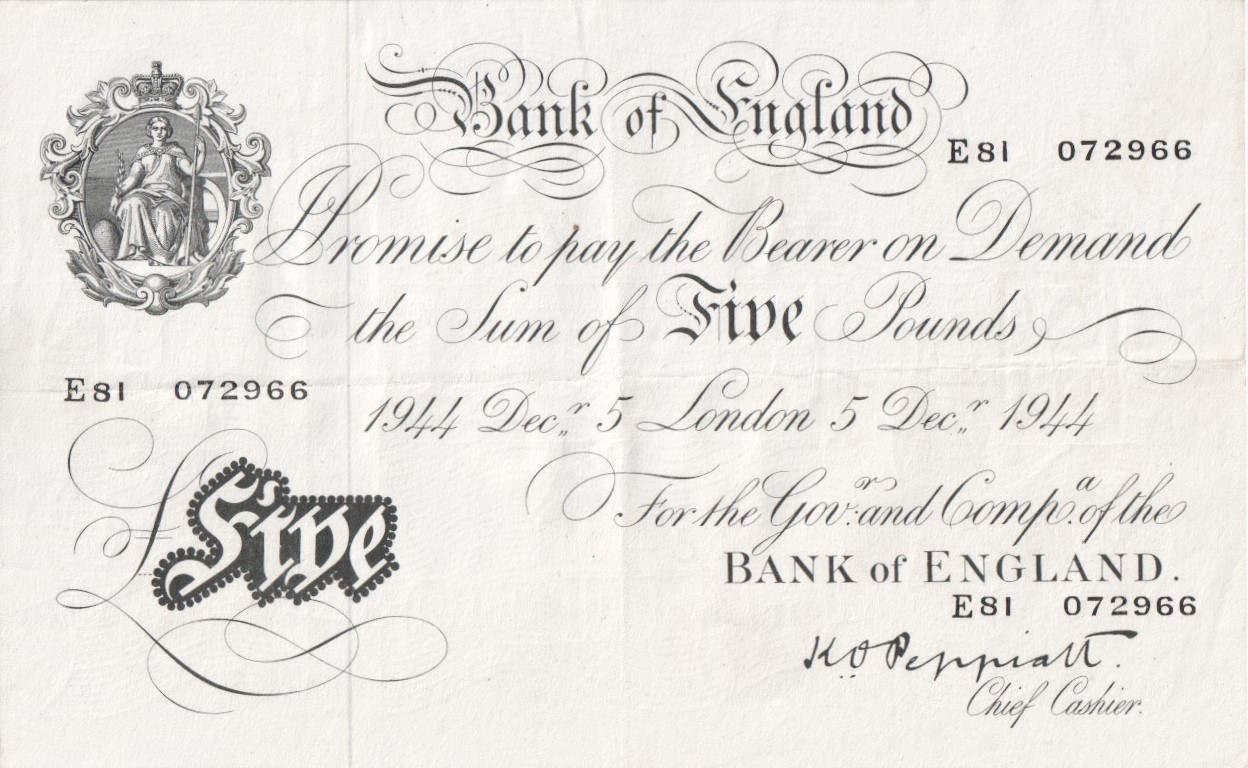 Bank of England
E81 072966
I Promise to pay the Bearer on Demand
the Sum of Five Pounds
E81 072966
1944 Decr. 5 London 5 Decr. 1944
For the Govr. and Compa. of the
BANK of ENGLAND.
£Five
E81 072966
K O Peppiatt.
Chief Cashier.